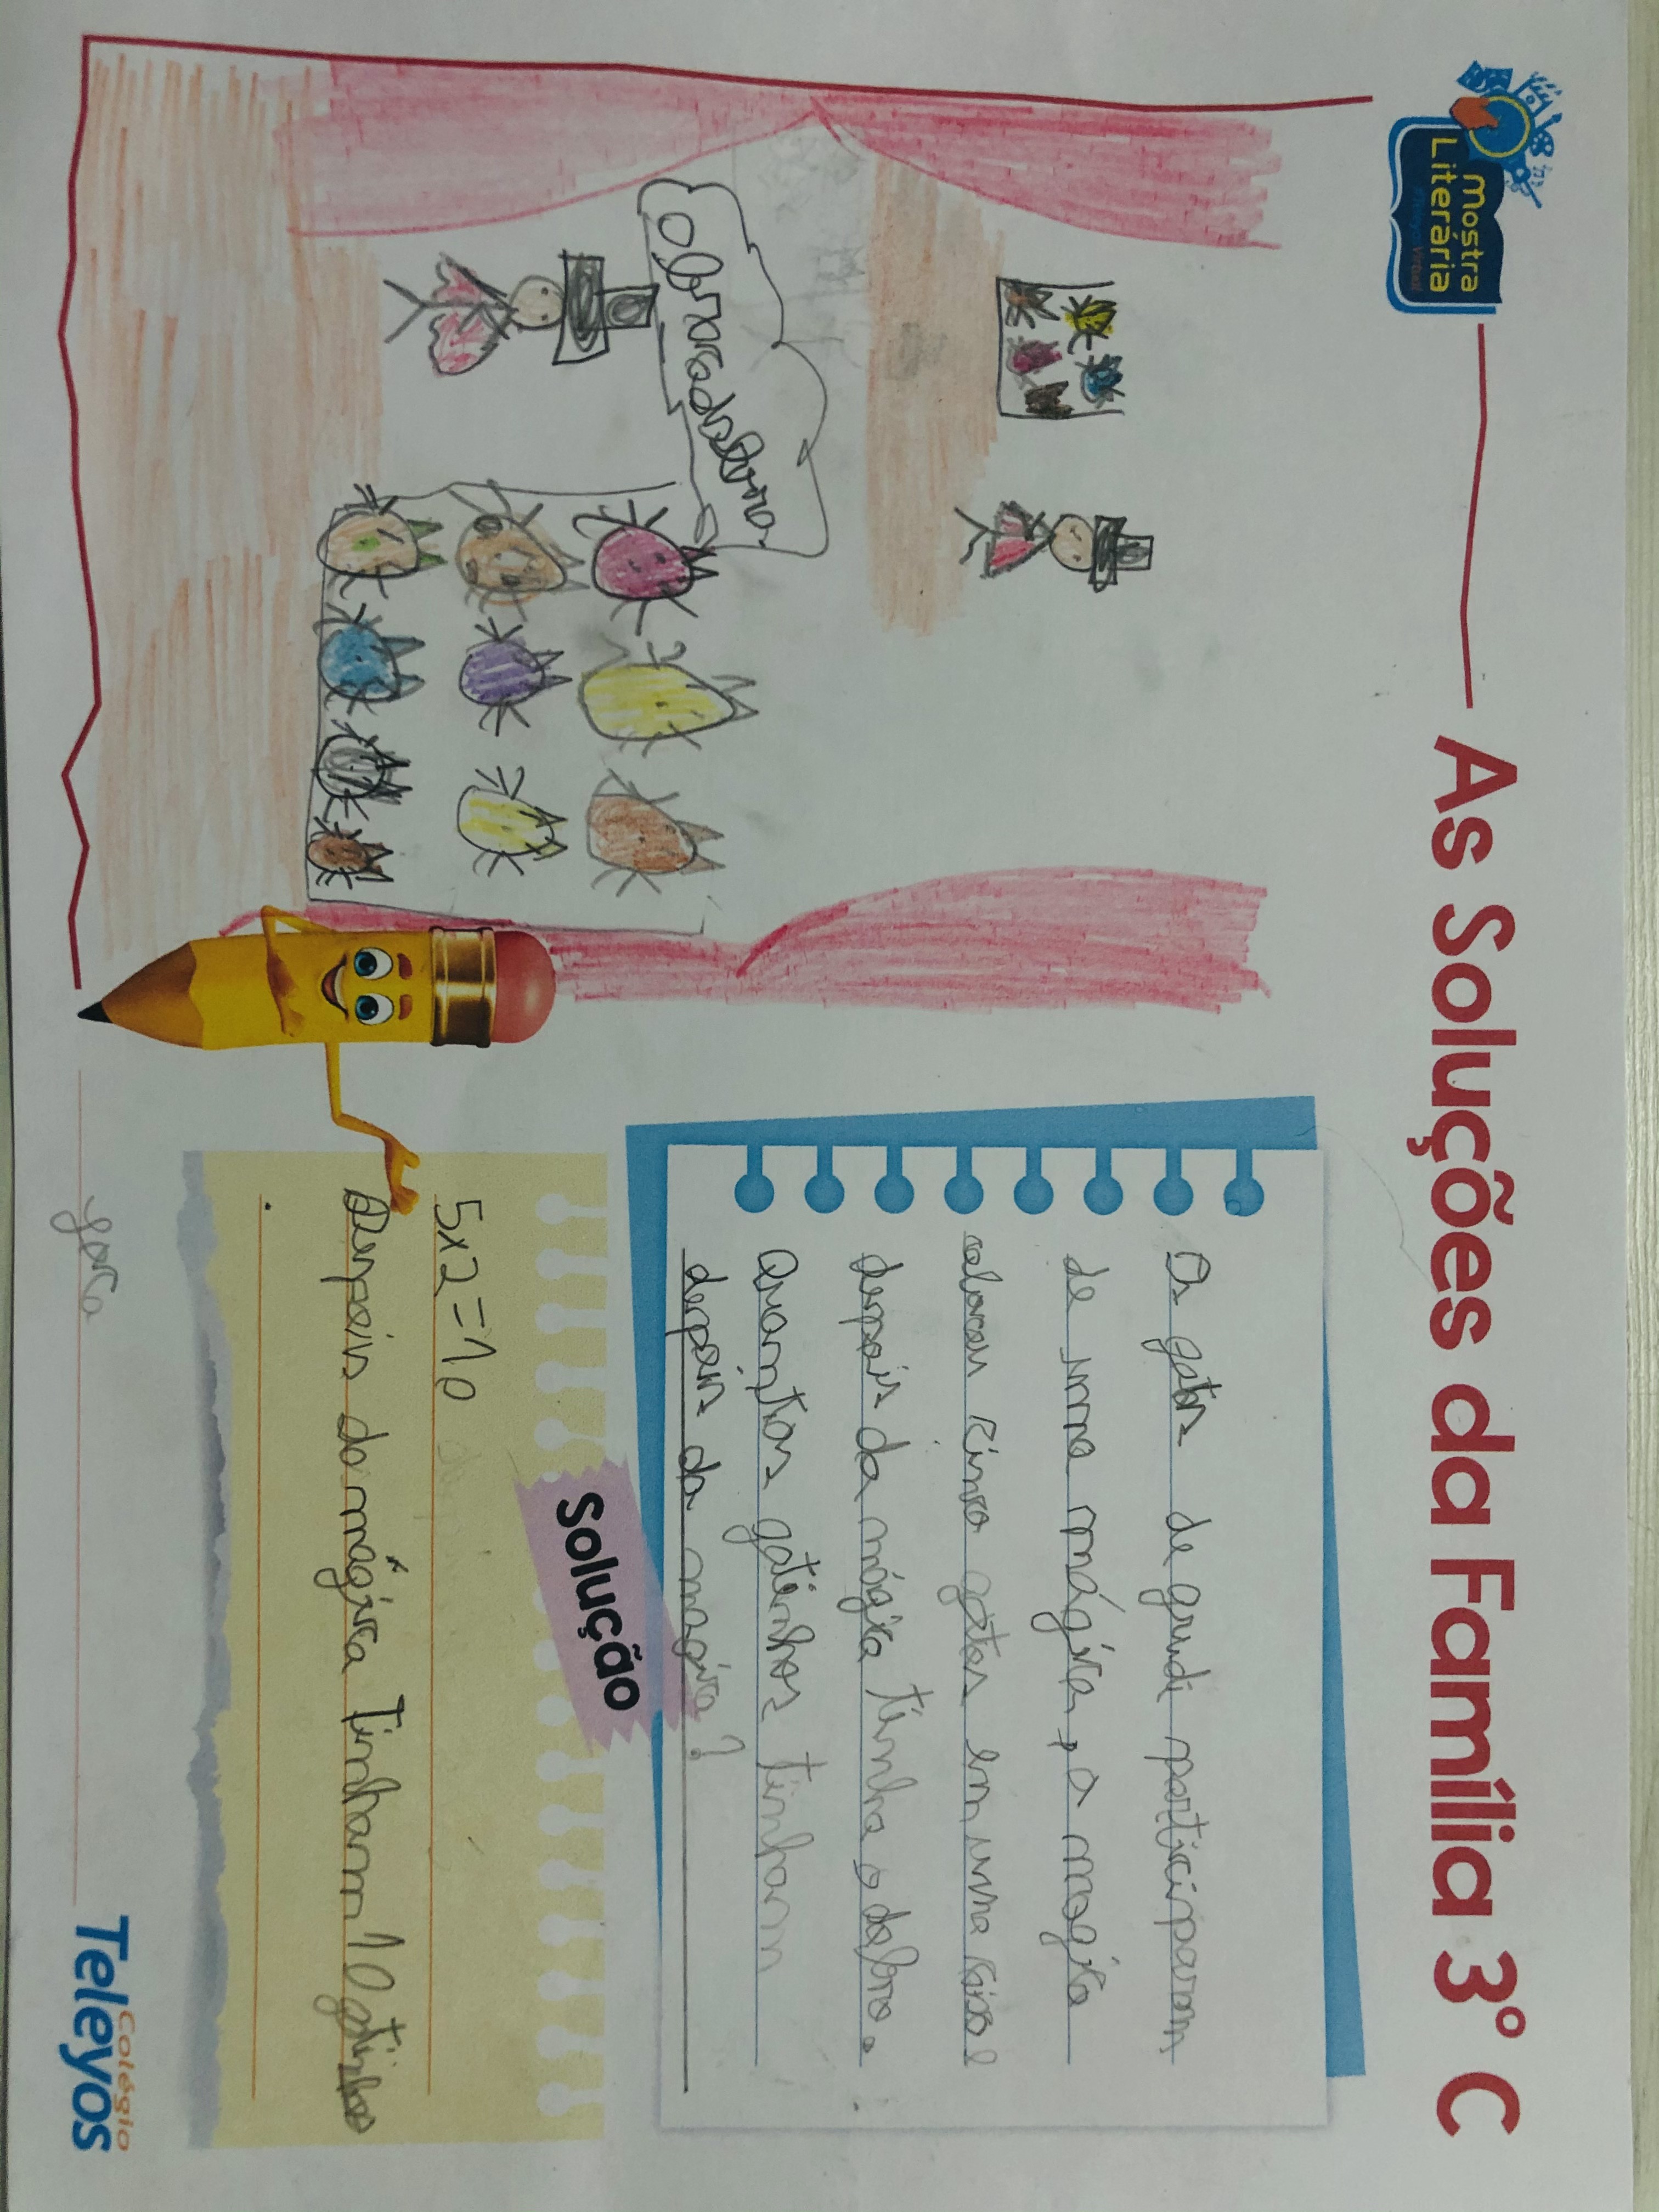 Mostra
Literária
As Soluções da Família 3º C
Abracadabra
Os gatos de gudi participaram
de uma mágica, o magico
colocou cinco gatos em uma caixa e
depois da mágica tinha o dobro.
Quantos gatinhos tinham
depois da magica?
Solução
5x2=10
Depois da mágica Tinham 10 gatinhos
.
Colégio
Teleyos